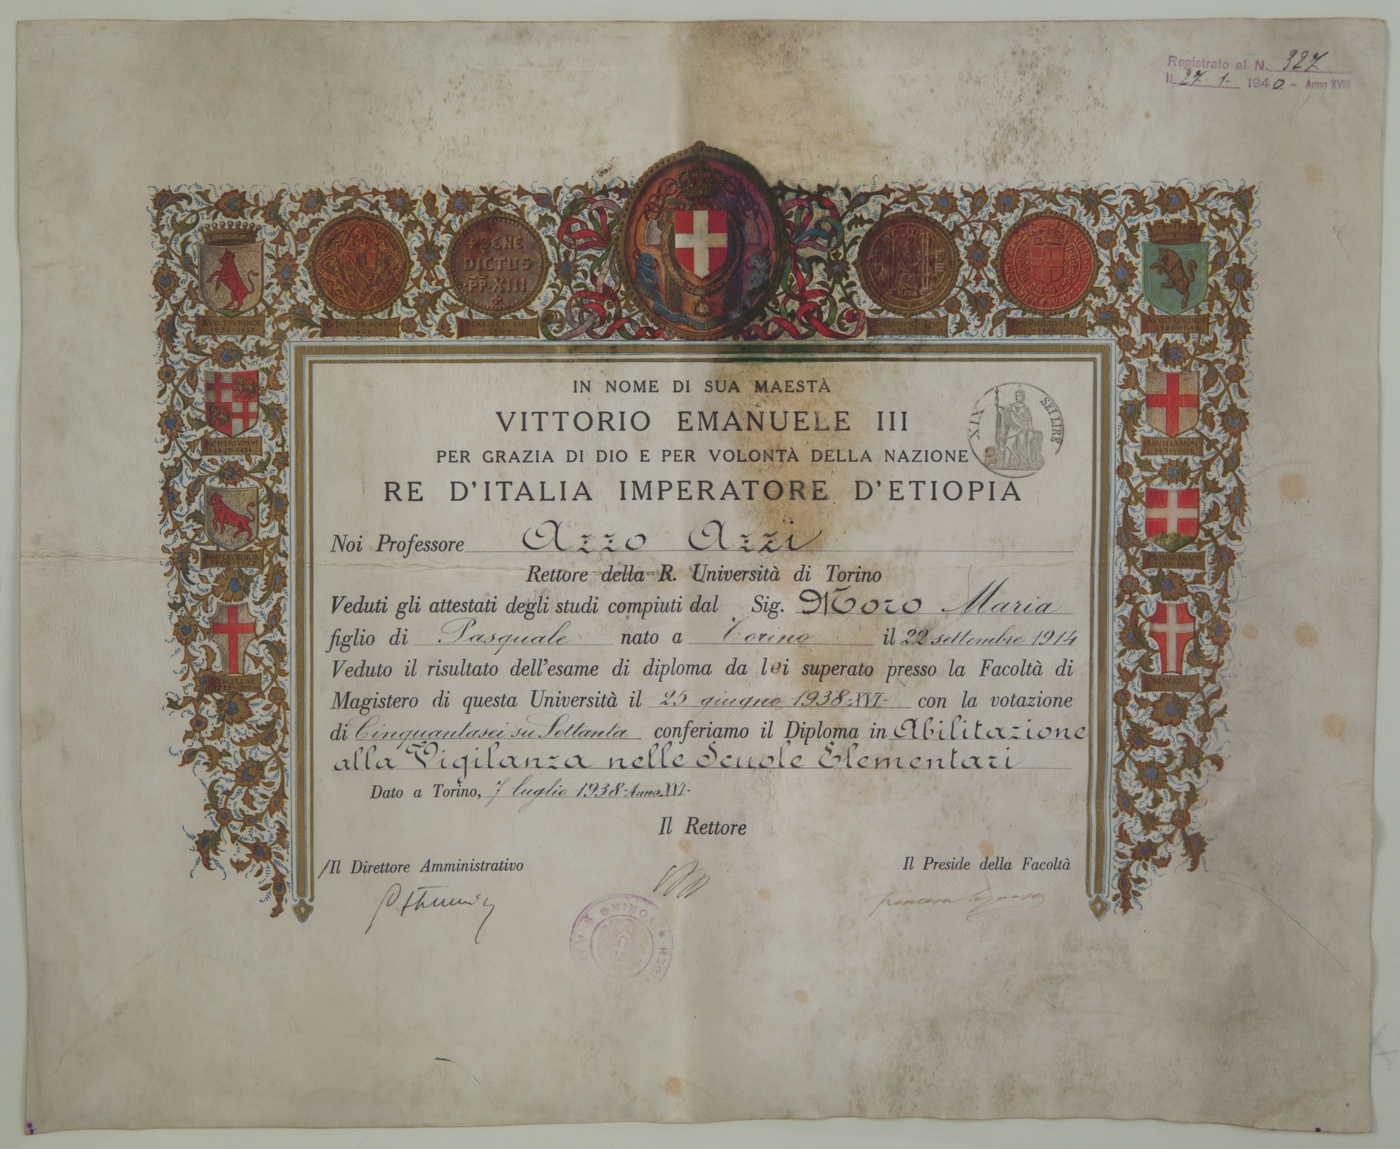 Registrato al N. 327
Il 27-1-1940 - Anno XVIII
+BENE
DICTUS
·PP·XIII
IN NOME DI SUA MAESTÀ
VITTORIO EMANUELE III
PER GRAZIA DI DIO E PER VOLONTÀ DELLA NAZIONE
XIX SEI LIRE
RE D'ITALIA IMPERATORE D'ETIOPIA
Noi Professore Azzo Azzi
Rettore della R. Università di Torino
Veduti gli attestati degli studi compiuti dal Sig. Moro Maria
figlio di Pasquale nato a Torino il 22 settembre 1914
Veduto il risultato dell'esame di diploma da lei superato presso la Facoltà di
Magistero di questa Università il 25 giugno 1938-XVI- con la votazione
di Cinquantasei su Settanta conferiamo il Diploma in Abilitazione
alla Vigilanza nelle Scuole Elementari
Dato a Torino, 7 luglio 1938-Anno XVI-
Il Rettore
/Il Direttore Amministrativo
Il Preside della Facoltà
TORINO